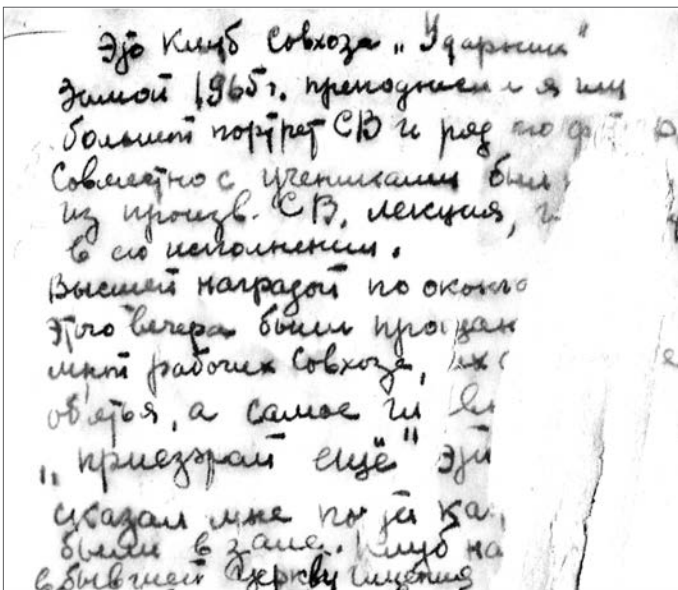 Это клуб совхоза „Ударник"
Зимой 1965 г. преподнесли я им
большой портрет СВ и ряд
Совместно с учениками был
из произв. СВ, лекция,
в его исполнении.
Высшей наградой по оконча
этого вечера были прощан
мной рабочих совхоза, их
об'ятья, а самое
„приезжай ещё"
сказал мне
были в зале. Клуб на
в бывшей церкви имения